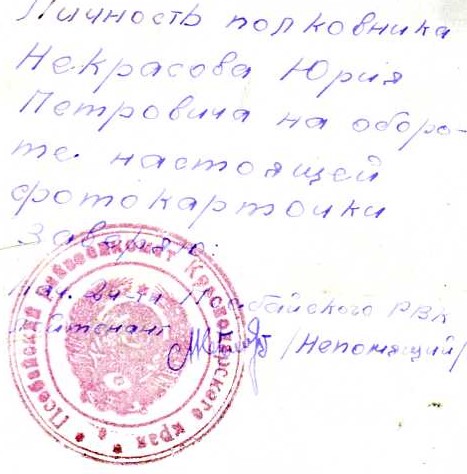 Личность полковника
Некрасова Юрия
Петровича на оборо-
те настоящей
фотокарточки
заверяю:
Нач. 2й-ч Псебайского РВК
лейтенант /Непомящий/
Псебайский райвоенкомат Краснодарского края